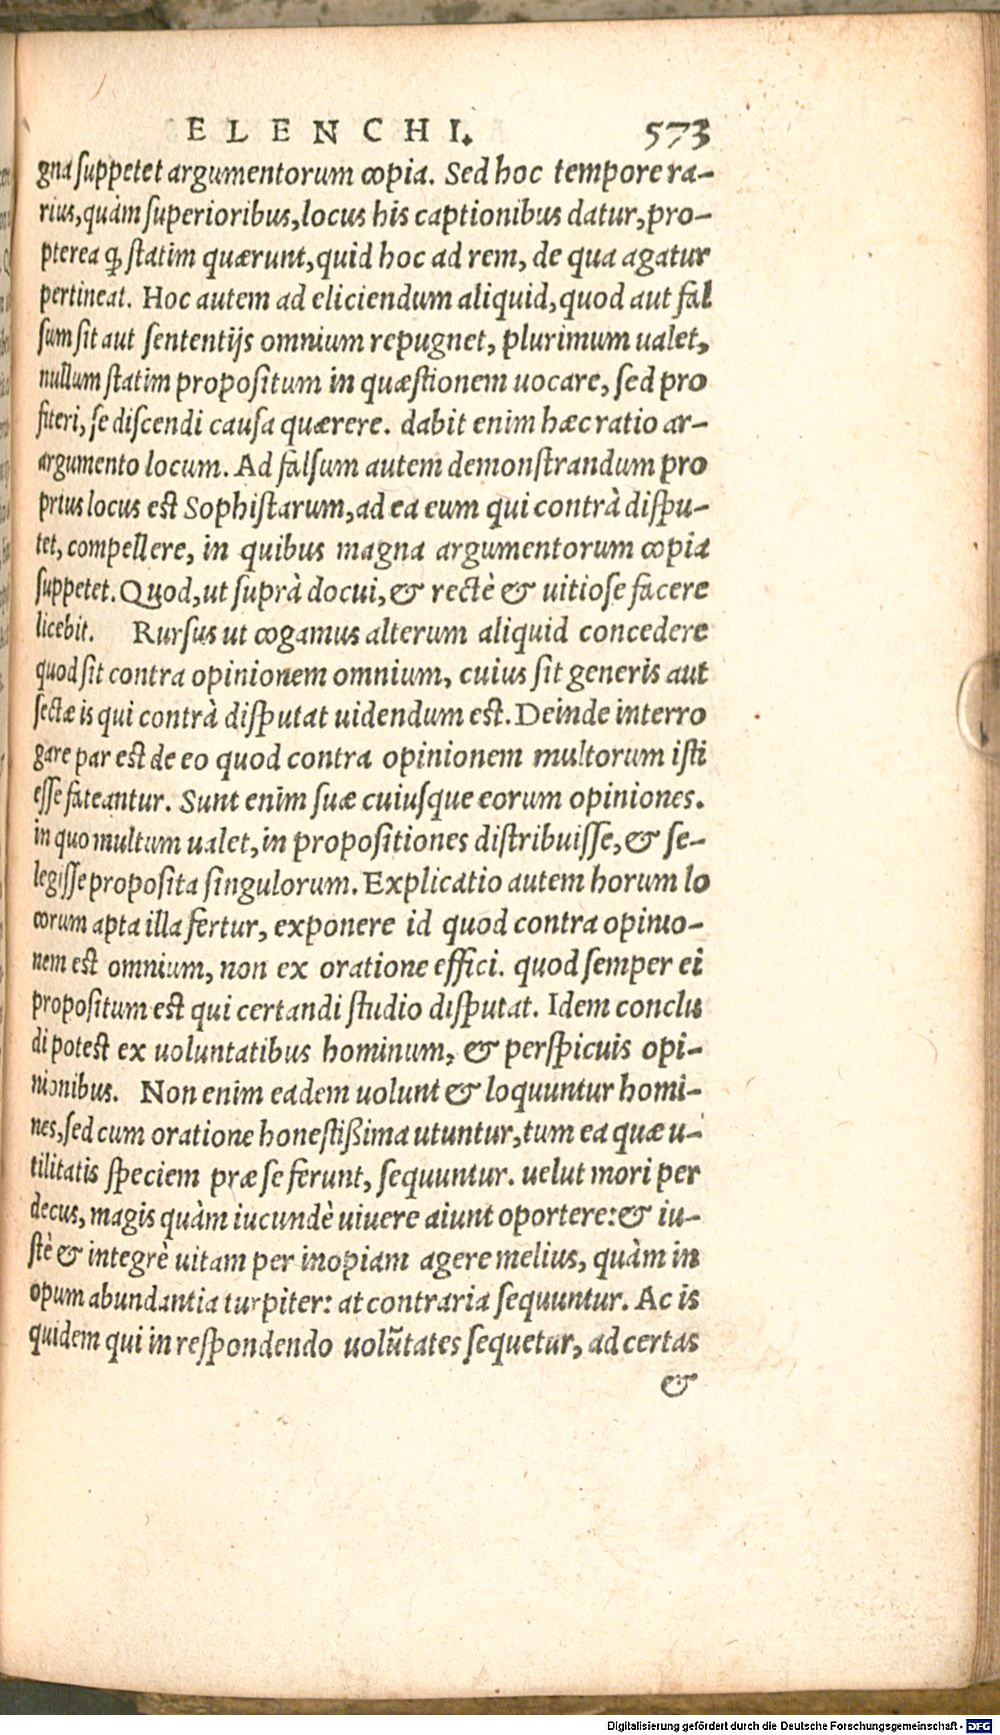 ELENCHI. 573
gna suppetet argumentorum copia. Sed hoc tempore ra-
rius, quàm superioribus, locus his captionibus datur, pro-
pterea ꝙ statim quærunt, quid hoc ad rem, de qua agatur
pertineat. Hoc autem ad eliciendum aliquid, quod aut fal
sum sit aut sententijs omnium repugnet, plurimum ualet,
nullum statim propositum in quæstionem uocare, sed pro
fiteri, se discendi causa quærere. dabit enim hæc ratio ar-
argumento locum. Ad falsum autem demonstrandum pro
prius locus est Sophistarum, ad ea eum qui contrà dispu-
tet, compellere, in quibus magna argumentorum copia
suppetet. Quod, ut suprà docui, & rectè & uitiose facere
licebit. Rursus ut cogamus alterum aliquid concedere
quod sit contra opinionem omnium, cuius sit generis aut
sectæ is qui contrà disputat uidendum est. Deinde interro
gare par est de eo quod contra opinionem multorum isti
esse fateantur. Sunt enim suæ cuiusque eorum opiniones.
in quo multum ualet, in propositiones distribuisse, & se-
legisse proposita singulorum. Explicatio autem horum lo
corum apta illa fertur, exponere id quod contra opinio-
nem est omnium, non ex oratione effici. quod semper ei
propositum est qui certandi studio disputat. Idem conclu
di potest ex uoluntatibus hominum, & perspicuis opi-
nionibus. Non enim eadem uolunt & loquuntur homi-
nes, sed cum oratione honestißima utuntur, tum ea quæ u-
tilitatis speciem præ se ferunt, sequuntur. uelut mori per
decus, magis quàm iucundè uiuere aiunt oportere: & iu-
stè & integrè uitam per inopiam agere melius, quàm in
opum abundantia turpiter: at contraria sequuntur. Ac is
quidem qui in respondendo volũtates sequetur, ad certas
&
Digitalisierung gefördert durch die Deutsche Forschungsgemeinschaft - DFG